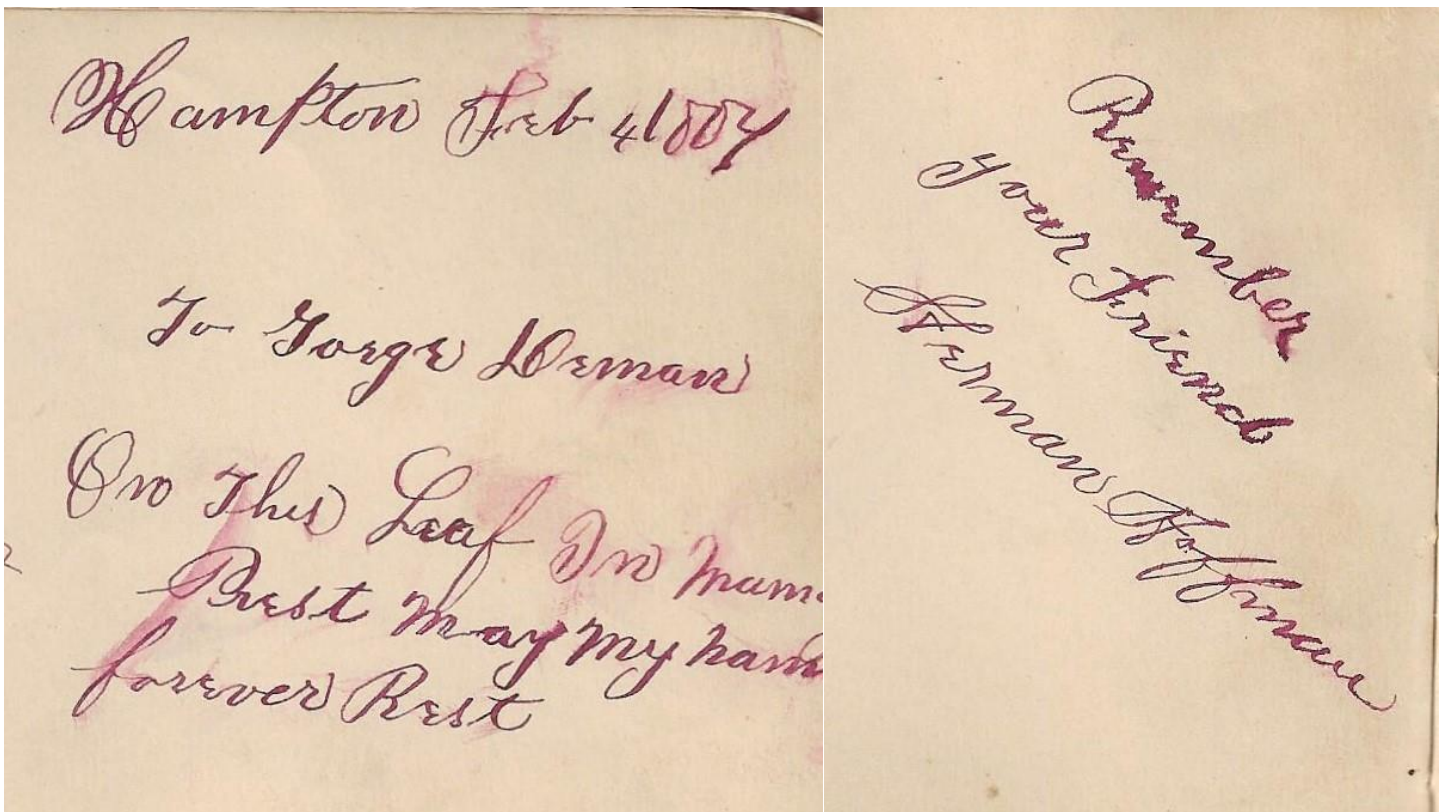 Hampton Feb 4 1887
To Gorge Deman
On This Leaf In Mem
Prest May My nam
forever Rest
Remember
your Friend
Herman Hoffman